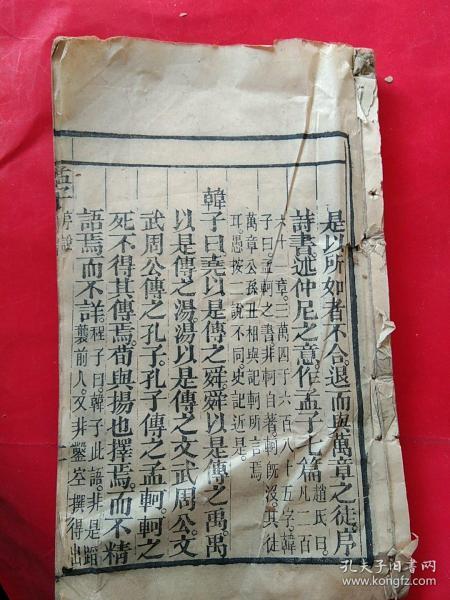 是以所如者不合退而與萬章之徒序
詩書述仲尼之意作孟子七篇趙氏曰凡二百
六十一章三萬四千六百八十五字韓
子曰孟軻之書非軻自著軻旣沒其徒
萬章公孫丑相與記軻所言焉
耳愚按二說不同史記近是
韓子曰堯以是傳之舜舜以是傳之禹禹
以是傳之湯湯以是傳之文武周公文
武周公傳之孔子孔子傳之孟軻軻之
死不得其傳焉荀與揚也擇焉而不精
語焉而不詳程子曰韓子此語非是蹈
襲前人又非鑿空撰得出
孟子
序說
孔夫子旧书网
www.kongfz.com